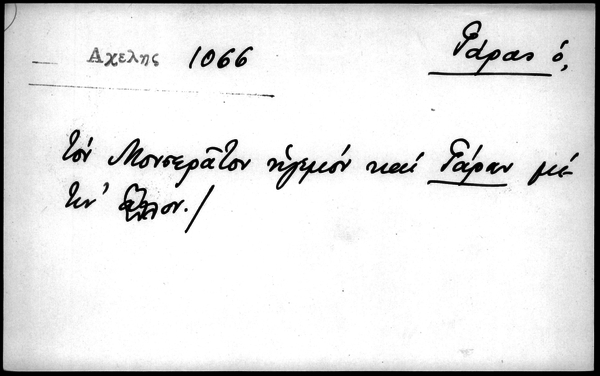 Αχελης 1066
Γάρας ὁ,
τὸν Μονσερᾶτον ἡγεμόν καί Γάραν μέ
τὸν ἄλλον./